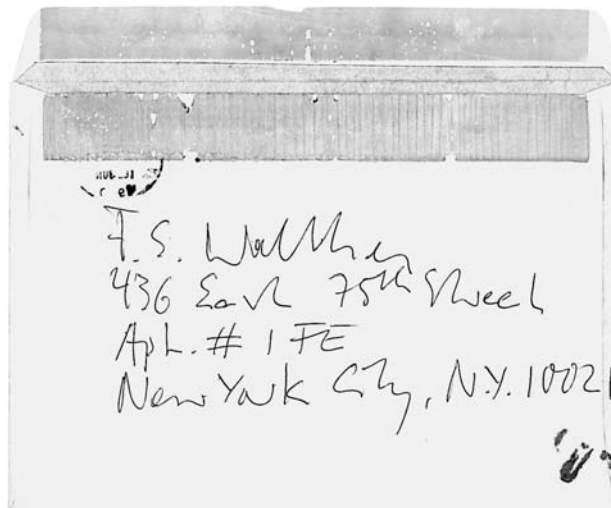 F.S. Walther
436 East 75th Street
Apt. # 1 FE
New York City, N.Y. 10021